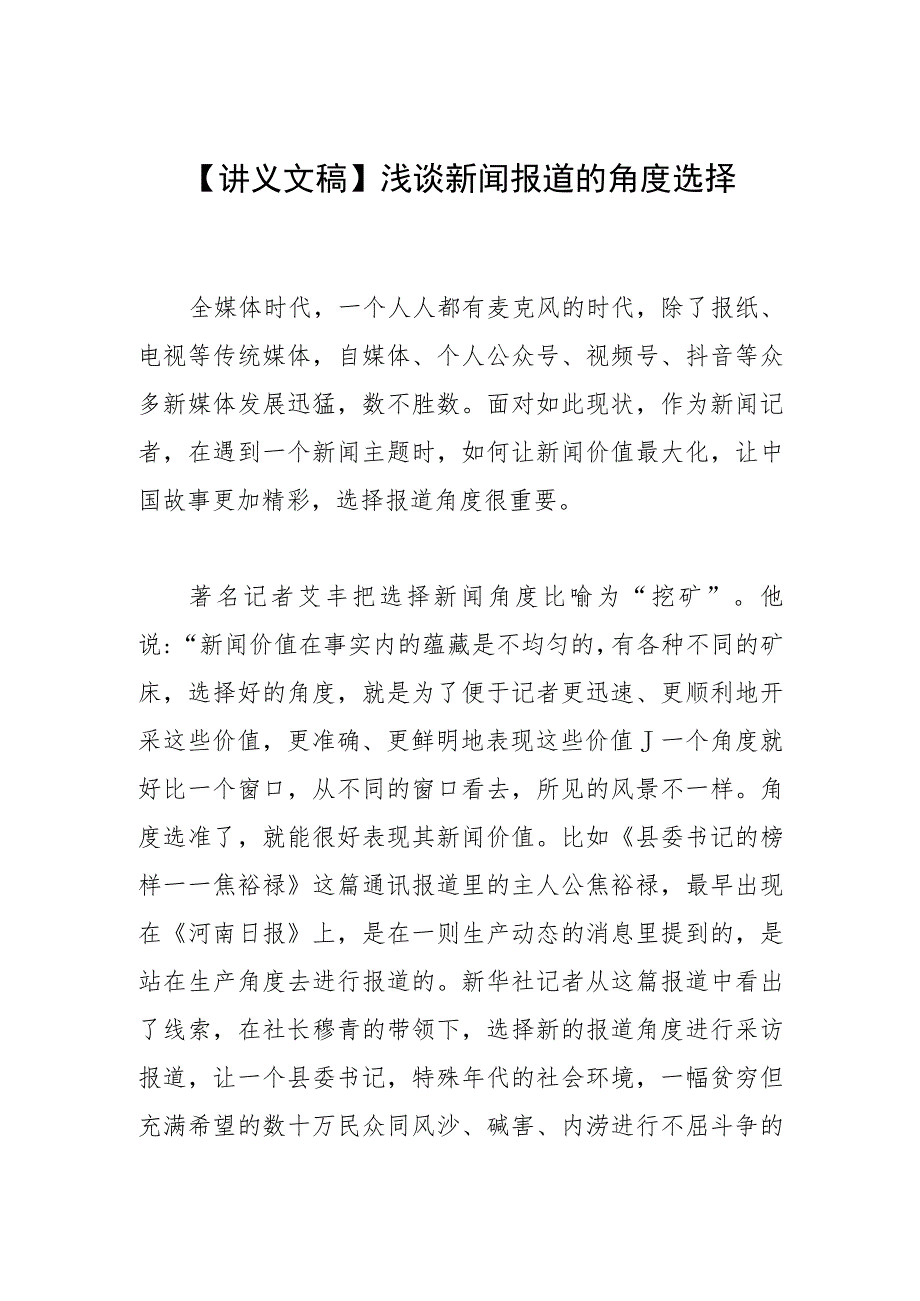 【讲义文稿】浅谈新闻报道的角度选择
全媒体时代，一个人人都有麦克风的时代，除了报纸、
电视等传统媒体，自媒体、个人公众号、视频号、抖音等众
多新媒体发展迅猛，数不胜数。面对如此现状，作为新闻记
者，在遇到一个新闻主题时，如何让新闻价值最大化，让中
国故事更加精彩，选择报道角度很重要。
著名记者艾丰把选择新闻角度比喻为“挖矿”。他
说:“新闻价值在事实内的蕴藏是不均匀的,有各种不同的矿
床，选择好的角度，就是为了便于记者更迅速、更顺利地开
采这些价值，更准确、更鲜明地表现这些价值J一个角度就
好比一个窗口，从不同的窗口看去，所见的风景不一样。角
度选准了，就能很好表现其新闻价值。比如《县委书记的榜
样一一焦裕禄》这篇通讯报道里的主人公焦裕禄，最早出现
在《河南日报》上，是在一则生产动态的消息里提到的，是
站在生产角度去进行报道的。新华社记者从这篇报道中看出
了线索，在社长穆青的带领下，选择新的报道角度进行采访
报道，让一个县委书记，特殊年代的社会环境，一幅贫穷但
充满希望的数十万民众同风沙、碱害、内涝进行不屈斗争的